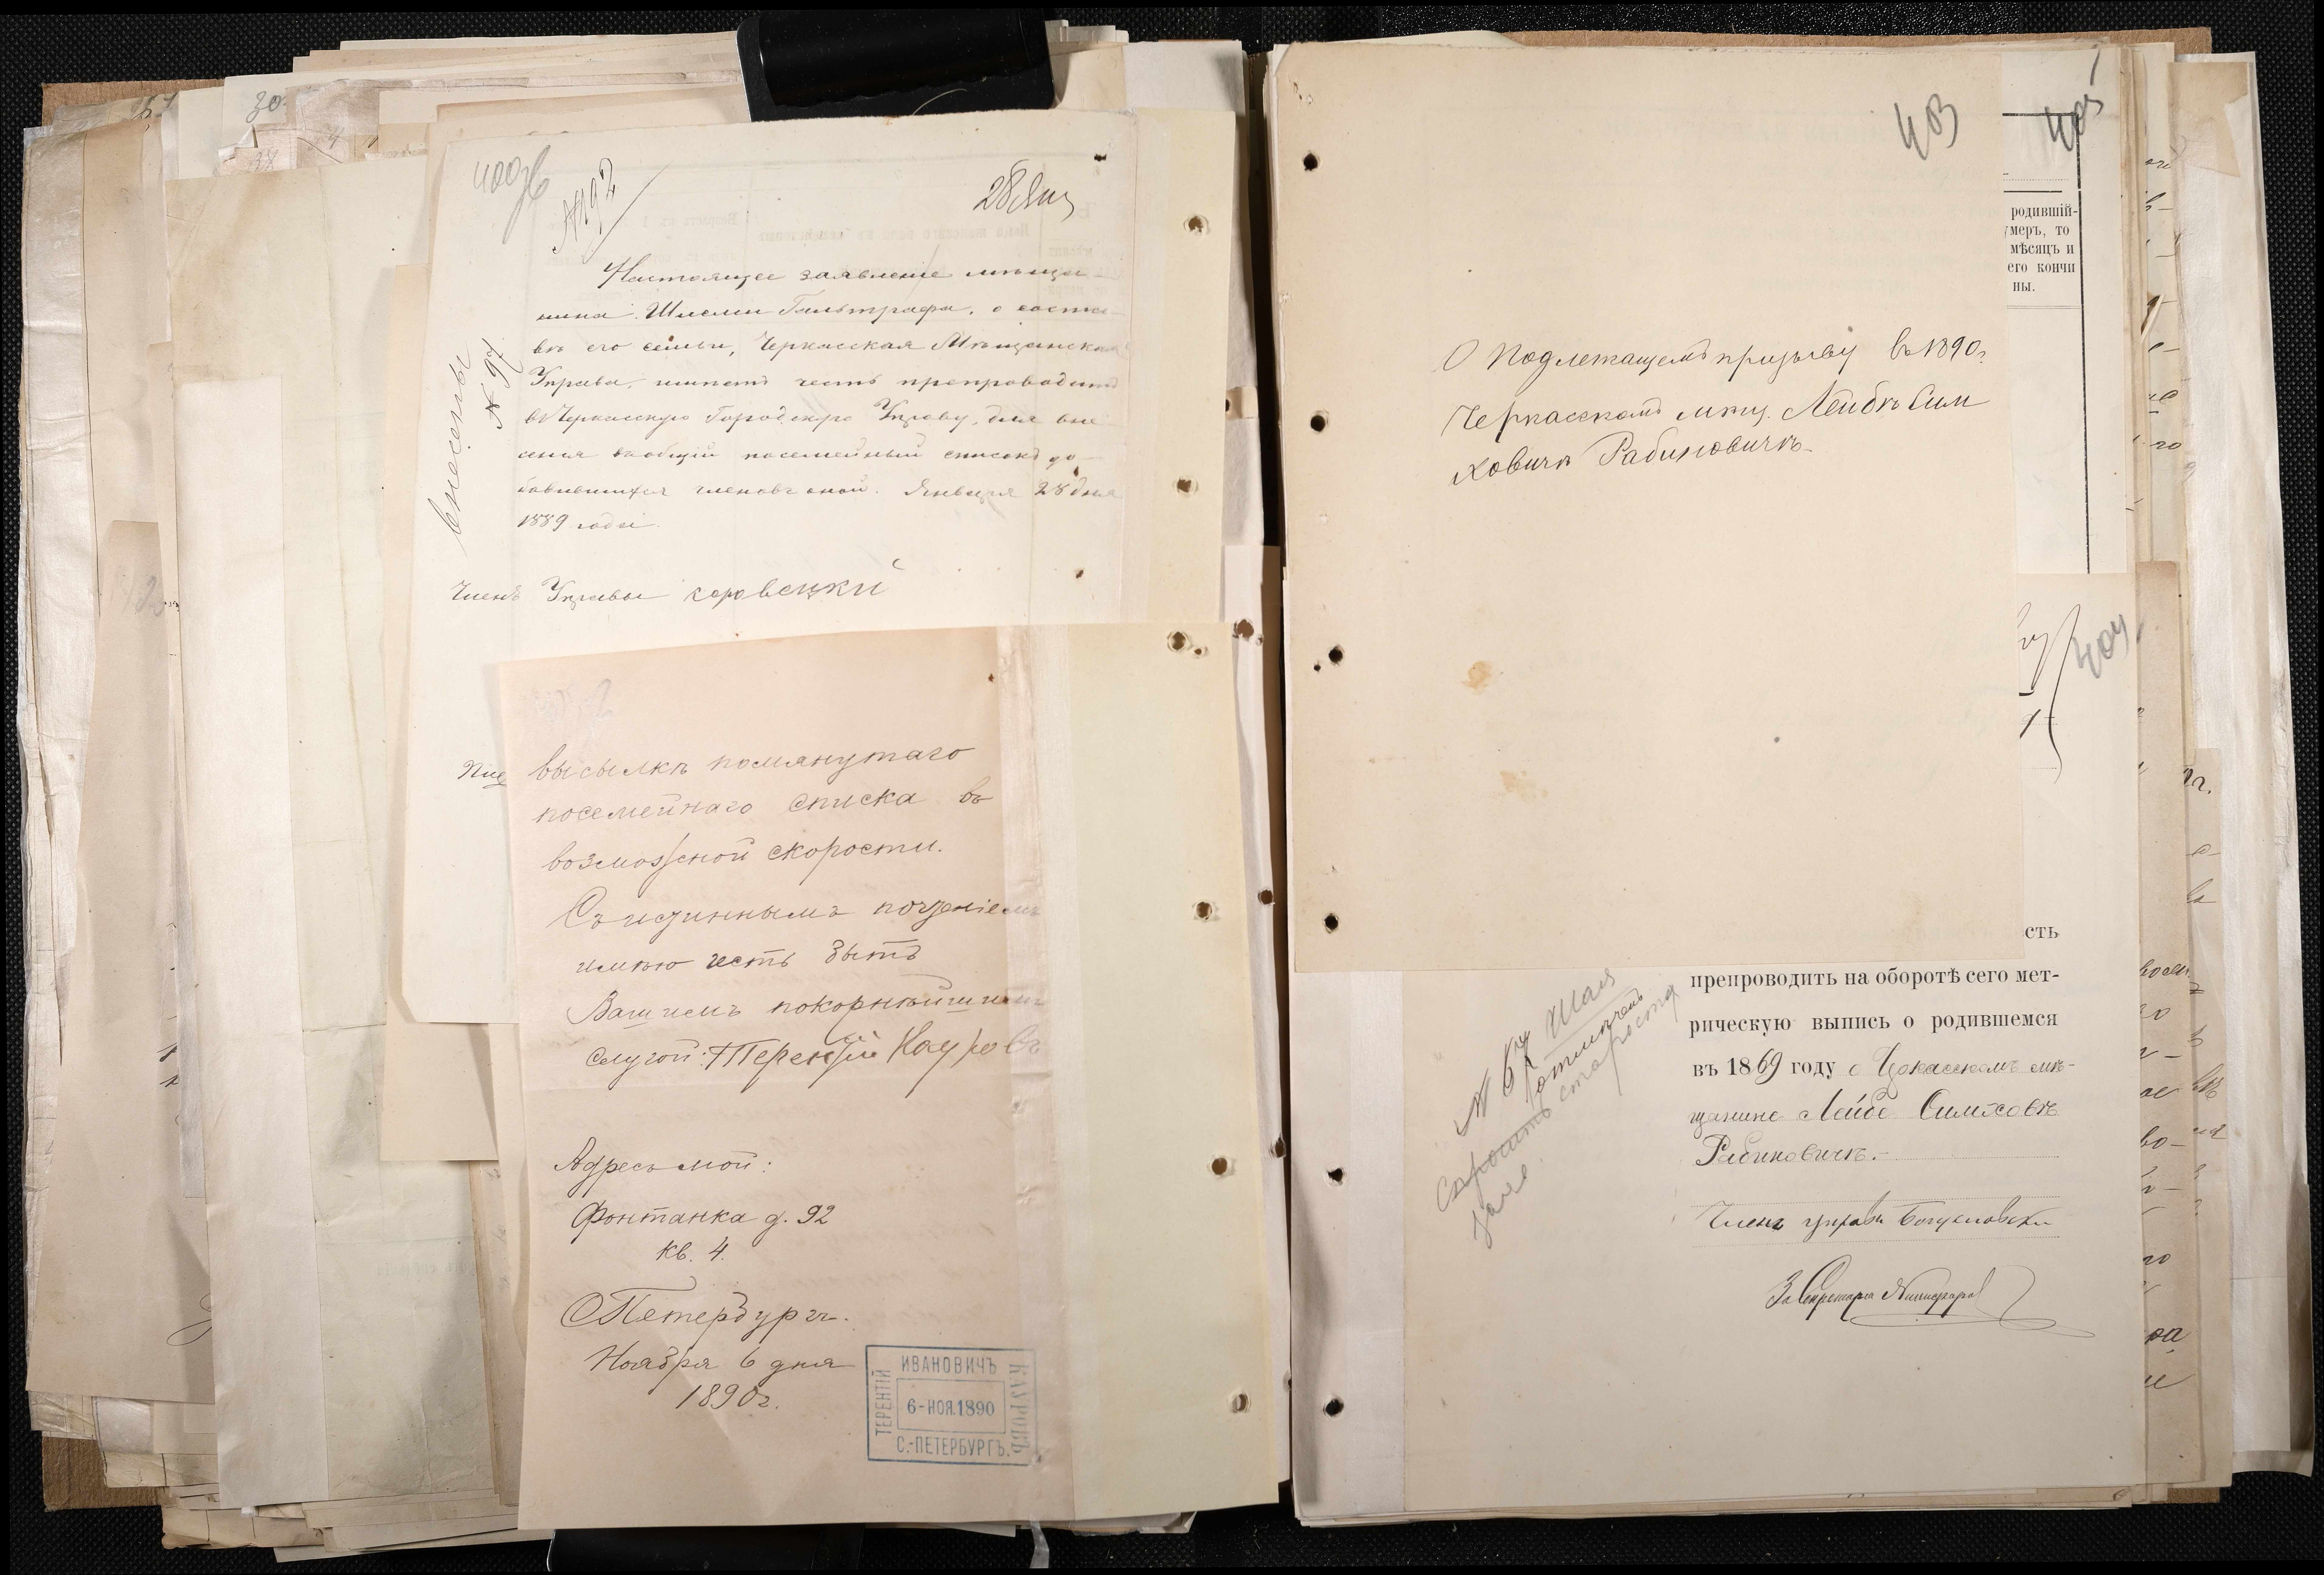 400 об
№192
28 Янв
внесены
№ 97
Настоящее заявление мѣща-
нина Шлемы Гальтрафа, о соста-
вѣ его семьи, Черкасская Мѣщанская
Управа, имѣетъ честь препроводить
въ Черкасскую Городскую Управу, для вне
сенія въ общій посемейный списокъ до-
бавившихся членовъ оной. Января 28 дня
1889 года
Членъ Управы
высылкѣ помянутаго
посемейнаго списка въ
возможной скорости.
Съ истиннымъ почтеніемъ
имѣю честь быть
Вашимъ покорнѣйшимъ
слугой: Терентій Кауровъ
Адресъ мой:
Фонтанка д. 92
кв. 4.
СПетербургъ.
Ноября 6 дня
1890г.
ИВАНОВИЧЪ
ТЕРЕНТІЙ
КАУРОВЪ
6-НОЯ.1890
С.-ПЕТЕРБУРГЪ.
403
405
О подлежащемъ призыву въ 1890г
Черкасскомъ мѣщ. Лейбѣ Сим
ховичѣ Рабиновичѣ.
родившій-
меръ, то
мѣсяцъ и
его кончи
ны.
404
сть
препроводить на оборотѣ сего мет-
рическую выпись о родившемся
въ 1869 году о Черкасскомъ мѣ-
щанине Лейбе Симховѣ
Рабиновичѣ.
Членъ управы Богуславскій
За Секретаря
Спросить старосту